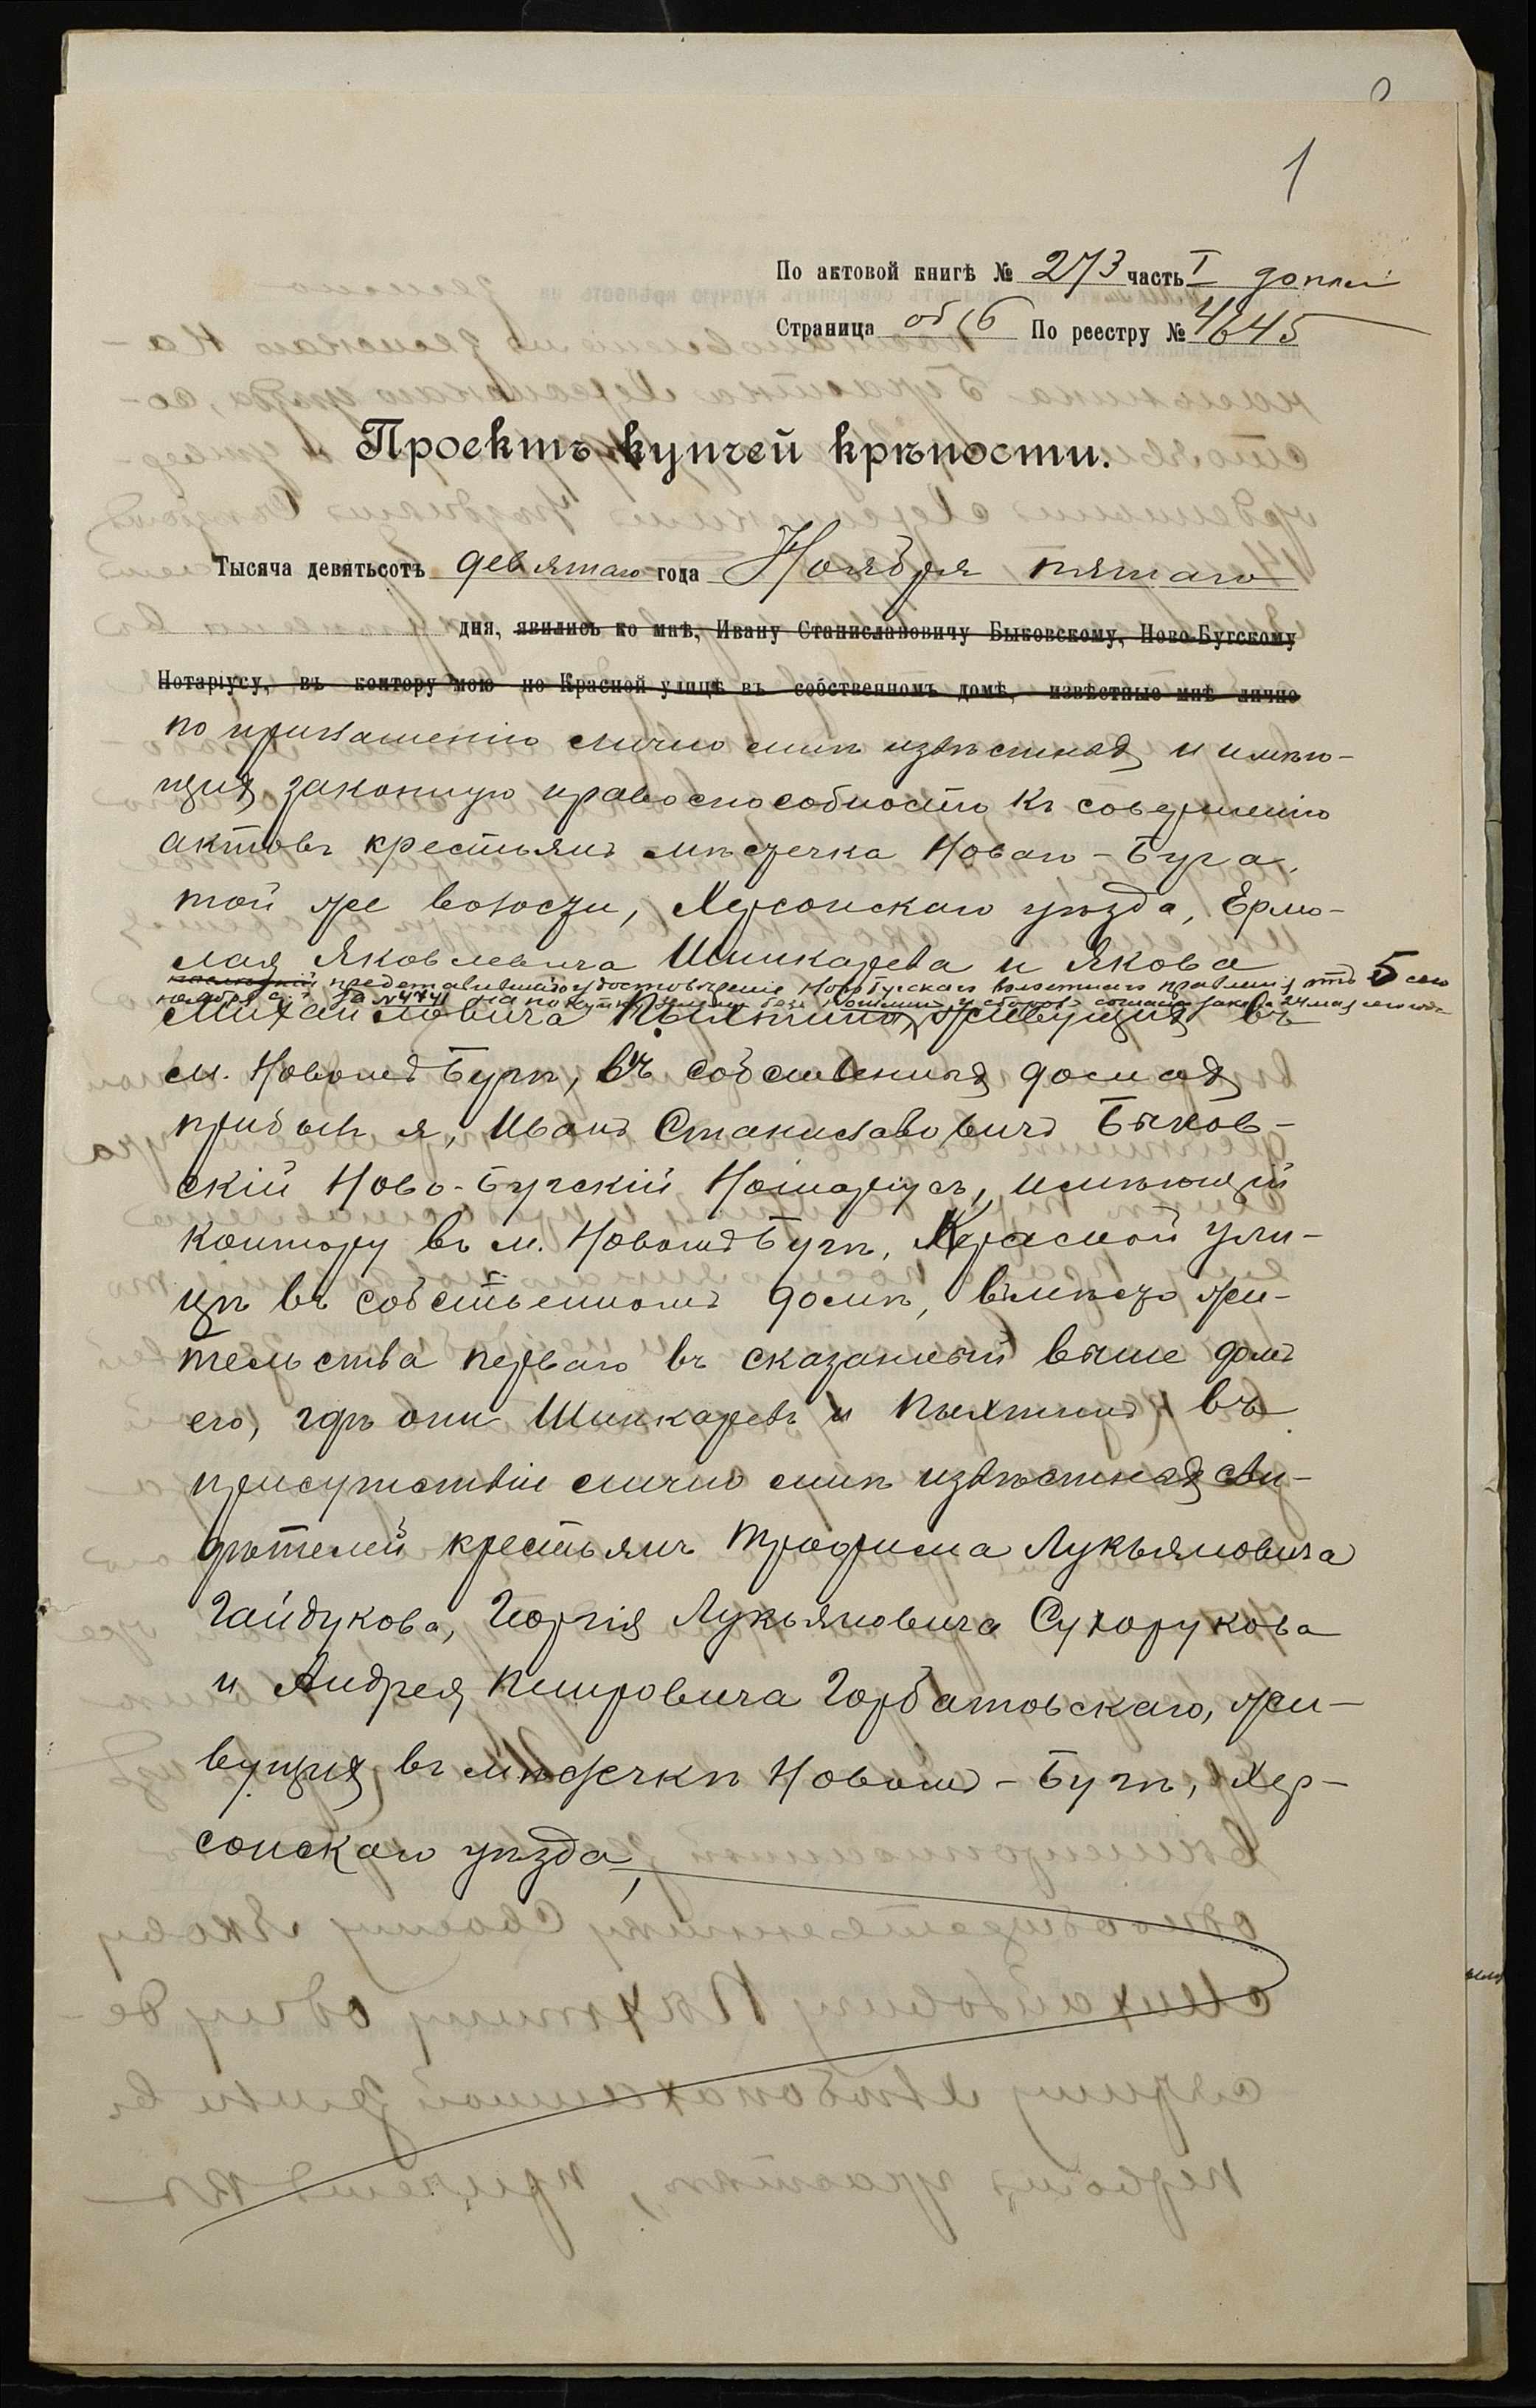 1
По актовой книгѣ № 273 часть I
Страница об 6 По реестру № 4645
Проектъ купчей крѣпости.
Тысяча девятьсотъ девятаго года Ноября пятаго
дня, явились ко мнѣ, Ивану Станиславовичу Быковскому, Ново-Бугскому
Нотаріусу, въ контору мою по Красной улицѣ въ собственномъ домѣ, извѣстные мнѣ лично
по приглашенію лично мнѣ извѣстныхъ и имѣю-
щихъ законную правоспособность къ совершенію
актовъ крестьянъ мѣстечка Новаго-Буга,
той же волости, Херсонскаго уѣзда, Ермо-
лая Яковлевича Шинкарева и Якова
последній представившаго удостовѣреніе Новобугскаго волостного правленія отъ 5 сего
ноября с. г. за № 4741 на покупку земли безъ согласно закона 24 мая
Михайловича Пыхтина, живущихъ въ
м. Новомъ Бугѣ, въ собственныхъ домахъ
прибылъ я, Иванъ Станиславовичъ Быков-
скій Ново-Бугскій Нотаріусъ, имѣющій
контору въ м. Новомъ Бугѣ, Красной ули-
цѣ въ собственномъ домѣ, въ мѣсто жи-
тельства перваго въ сказанный выше домъ
его, гдѣ они Шинкаревъ и Пыхтинъ въ
присутствіи лично мнѣ извѣстныхъ сви-
дѣтелей крестьянъ Трофима Лукьяновича
Гайдукова, Георгія Лукьяновича Сухорукова
и Андрея Петровича Горбатовскаго, жи-
вущихъ въ мѣстечкѣ Новомъ-Бугѣ, Хер-
сонскаго уѣзда,